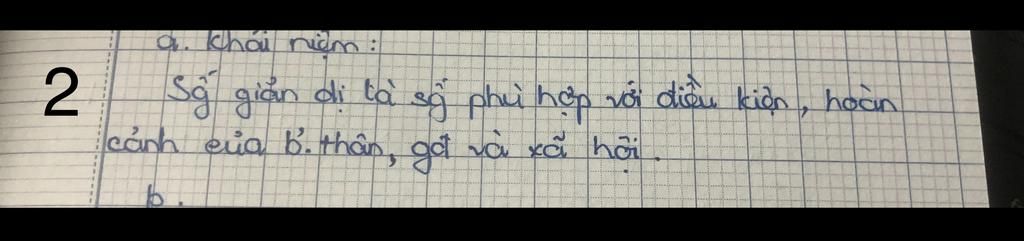 a. Khái niệm:
2
Sg̃ giản dị là sg̃ phù hợp với điều kiện, hoàn
cảnh của b'. thân, gđ và xã hội.
b.